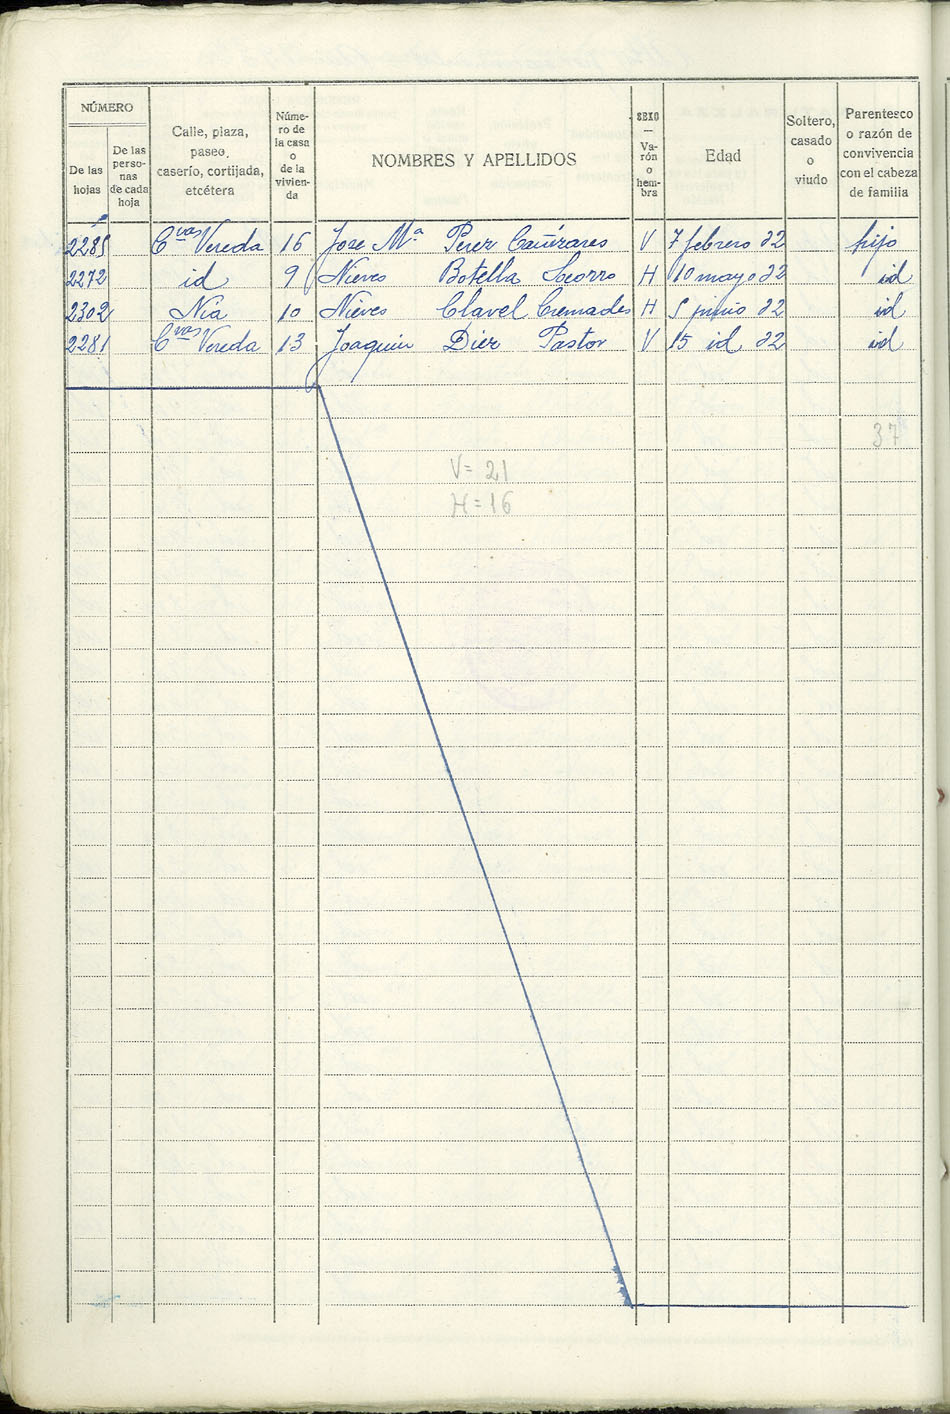 NÚMERO
De las hojas
De las personas de cada hoja
Calle, plaza, paseo, caserío, cortijada, etcétera
Número de la casa o de la vivienda
NOMBRES Y APELLIDOS
SEXO — Varón o hembra
Edad
Soltero, casado o viudo
Parentesco o razón de convivencia con el cabeza de familia
2285 Cvas Vereda 16 Jose Mª Perez Cañizares V 7 febrero 22 hijo
2272 id 9 Nieves Botella Socorro H 10 mayo 22 id
2302 Nia 10 Nieves Clavel Cremades H 5 junio 22 id
2281 Cvas Vereda 13 Joaquin Dier Pastor V 15 id 22 id
37
V= 21
H= 16